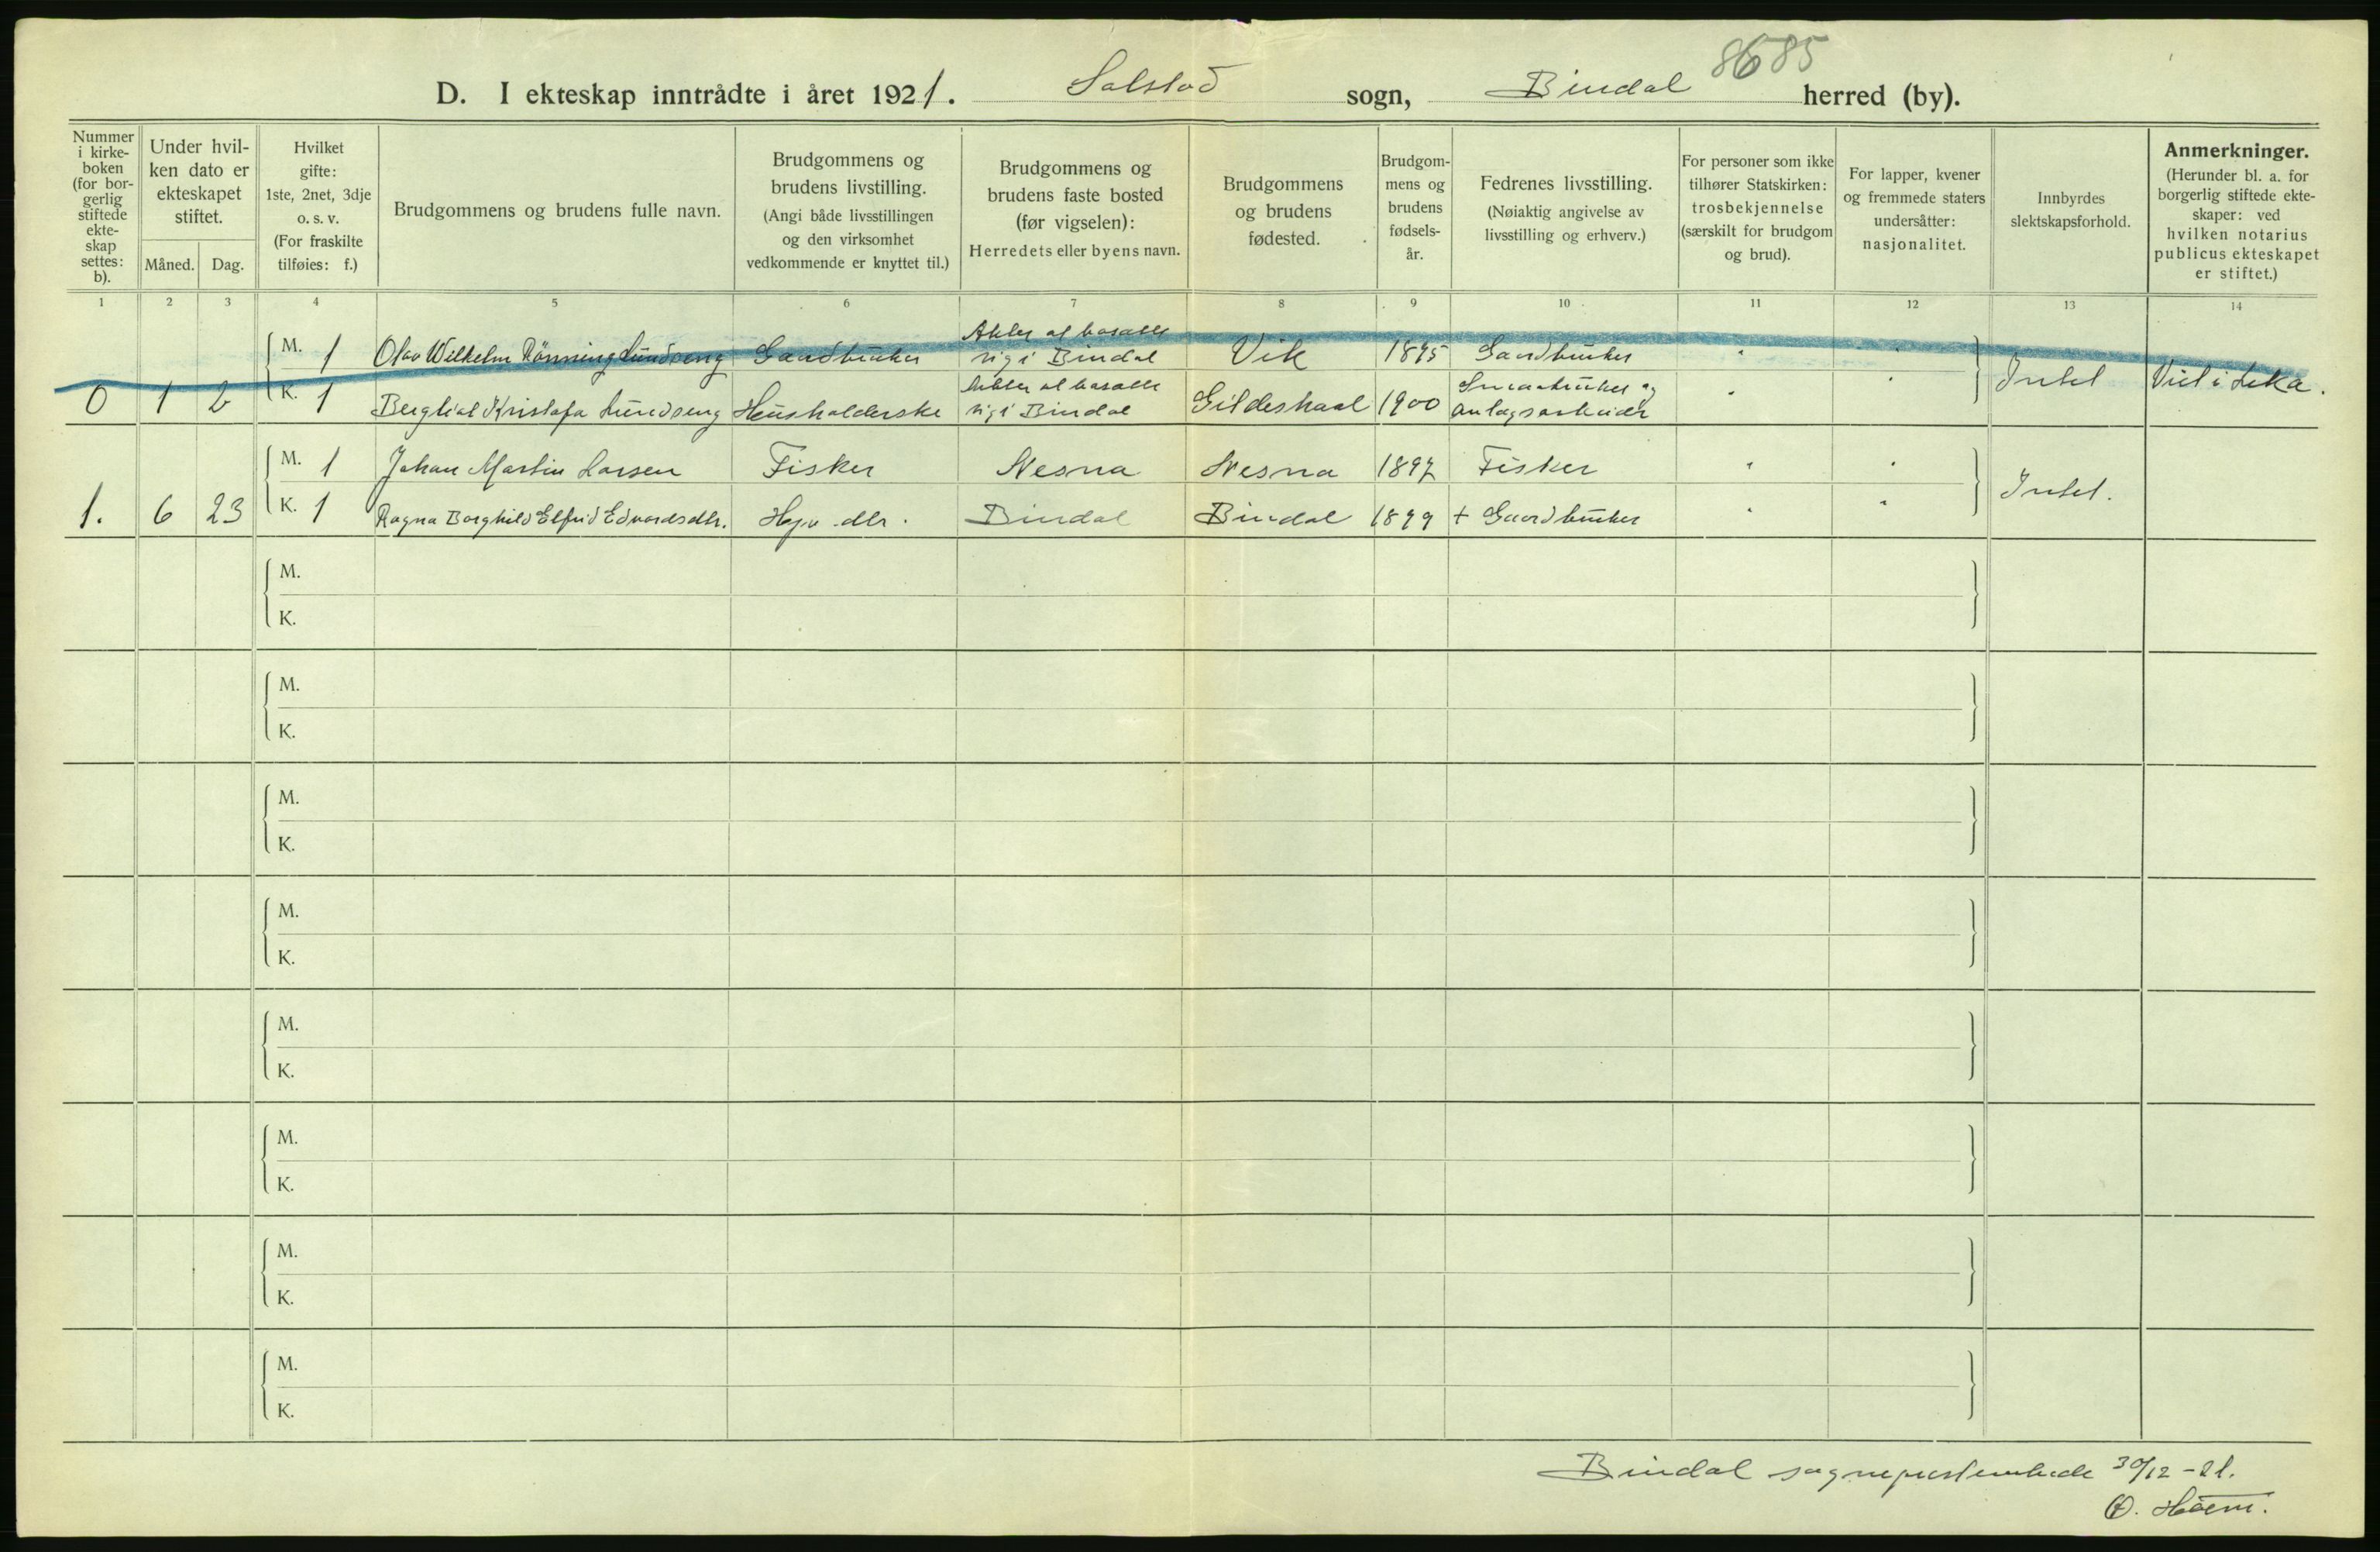 8685
D. I ekteskap inntrådte i året 1921. Solstad sogn, Bindal herred (by).
Nummer i kirkeboken (for borgerlig stiftede ekteskap settes: b).
Under hvilken dato er ekteskapet stiftet.
Måned. Dag.
Hvilket gifte: 1ste, 2net, 3dje o. s. v. (For fraskilte tilføies: f.)
Brudgommens og brudens fulle navn.
Brudgommens og brudens livstilling. (Angi både livsstillingen og den virksomhet vedkommende er knyttet til.)
Brudgommens og brudens faste bosted (før vigselen): Herredets eller byens navn.
Brudgommens og brudens fødested.
Brudgommens og brudens fødselsår.
Fedrenes livsstilling. (Nøiaktig angivelse av livsstilling og erhverv.)
For personer som ikke tilhører Statskirken: trosbekjennelse (særskilt for brudgom og brud).
For lapper, kvener og fremmede staters undersåtter: nasjonalitet.
Innbyrdes slektskapsforhold.
Anmerkninger. (Herunder bl. a. for borgerlig stiftede ekteskaper: ved hvilken notarius publicus ekteskapet er stiftet.)
1 2 3 4 5 6 7 8 9 10 11 12 13 14
M. 1 Olav Wilhelm Rönning Lundseng Gaardbruker Akter at bosætte sig i Bindal Vik 1895 Gaardbruker "
0 1 2 K. 1 Bergliot Kristofa Lundseng Husholderske Akter at bosætte sig i Bindal Gildeskaal 1900 Smaabruker og anlægsarbeider " " Intet Viet i Leka.
M. 1 Johan Martin Larsen Fisker Nesna Nesna 1897 Fisker " "
1. 6 23 K. 1 Ragna Borghild Elfrid Edvardsdtr. Hjv. dtr. Bindal Bindal 1899 + Gaardbruker " " Intet.
M.
K.
M.
K.
M.
K.
M.
K.
M.
K.
M.
K.
M.
K.
M.
K.
Bindal sogneprestembede 30/12-21.
O. Höem.